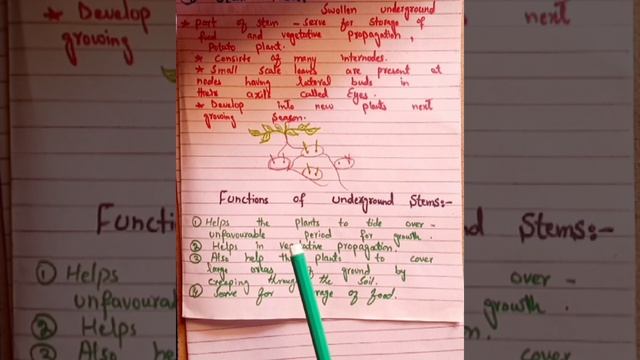 Swollen underground
* Part of stem - Serve for Storage of
food and vegetative propagation,
Potato plant.
* Consists of many internodes.
* Small scale leaves are present at
nodes having lateral buds in
their axils called Eyes.
* Develop into new plants next
growing Season.
Functions of underground Stems:-
① Helps the plants to tide over -
unfavourable period for growth.
② Helps in vegetative propagation.
③ Also help the plants to cover
large areas of ground by
creeping through the Soil.
Serve for of food.